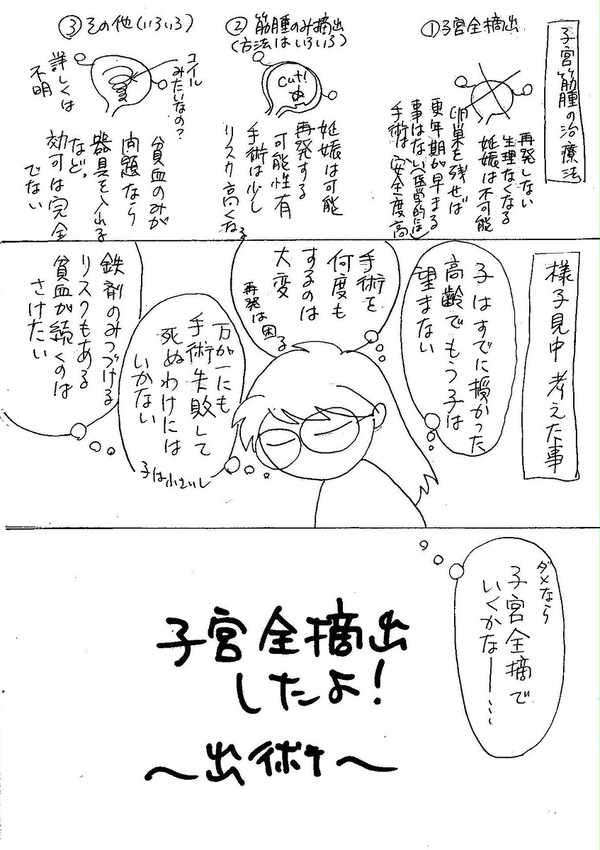 子宮筋腫の治療法
①子宮全摘出
再発しない
生理なくなる
妊娠は不可能
卵巣を残せば
更年期が早まる
事はない(医学的には)
手術は安全度高
②筋腫のみ摘出
(方法はいろいろ)
cut!
妊娠は可能
再発する
可能性有
手術は少し
リスク高くなる
③その他(いろいろ)
コイル
みたいなの?
詳しくは
不明
貧血のみが
問題なら
器具を入れる
など。
効可は完全
でない
様子見中 考えた事
子はすでに授かった
高齢でもう子は
望まない
手術を
何度も
するのは
大変
再発は困る
万が一にも
手術失敗して
死ぬわけには
いかない
子は小さいし
鉄剤のみつづける
リスクもある
貧血が続くのは
さけたい
ダメなら
子宮全摘で
いくかなー……
子宮全摘出
したよ!
〜出術〜